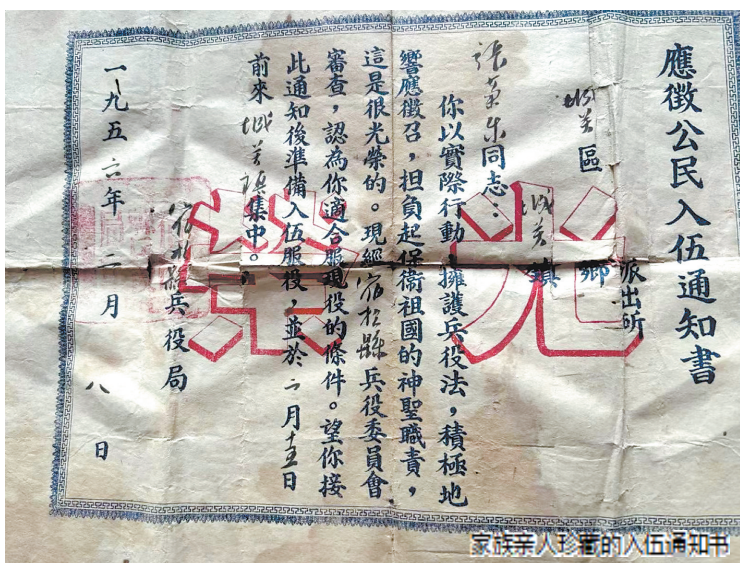 應徵公民入伍通知書
派出所
城关區 城关鄉鎮
張 同志：
你以實際行動，擁護兵役法，積極地
響應徵召，担負起保衛祖國的神聖職責，
這是很光榮的。現經宿松縣兵役委員會
審查，認為你適合服現役的條件。望你接
此通知後準備入伍服役，並於二月十五日
前來城关鎮集中。
宿松縣兵役局
一九五六年二月八日
光荣
家族亲人珍藏的入伍通知书